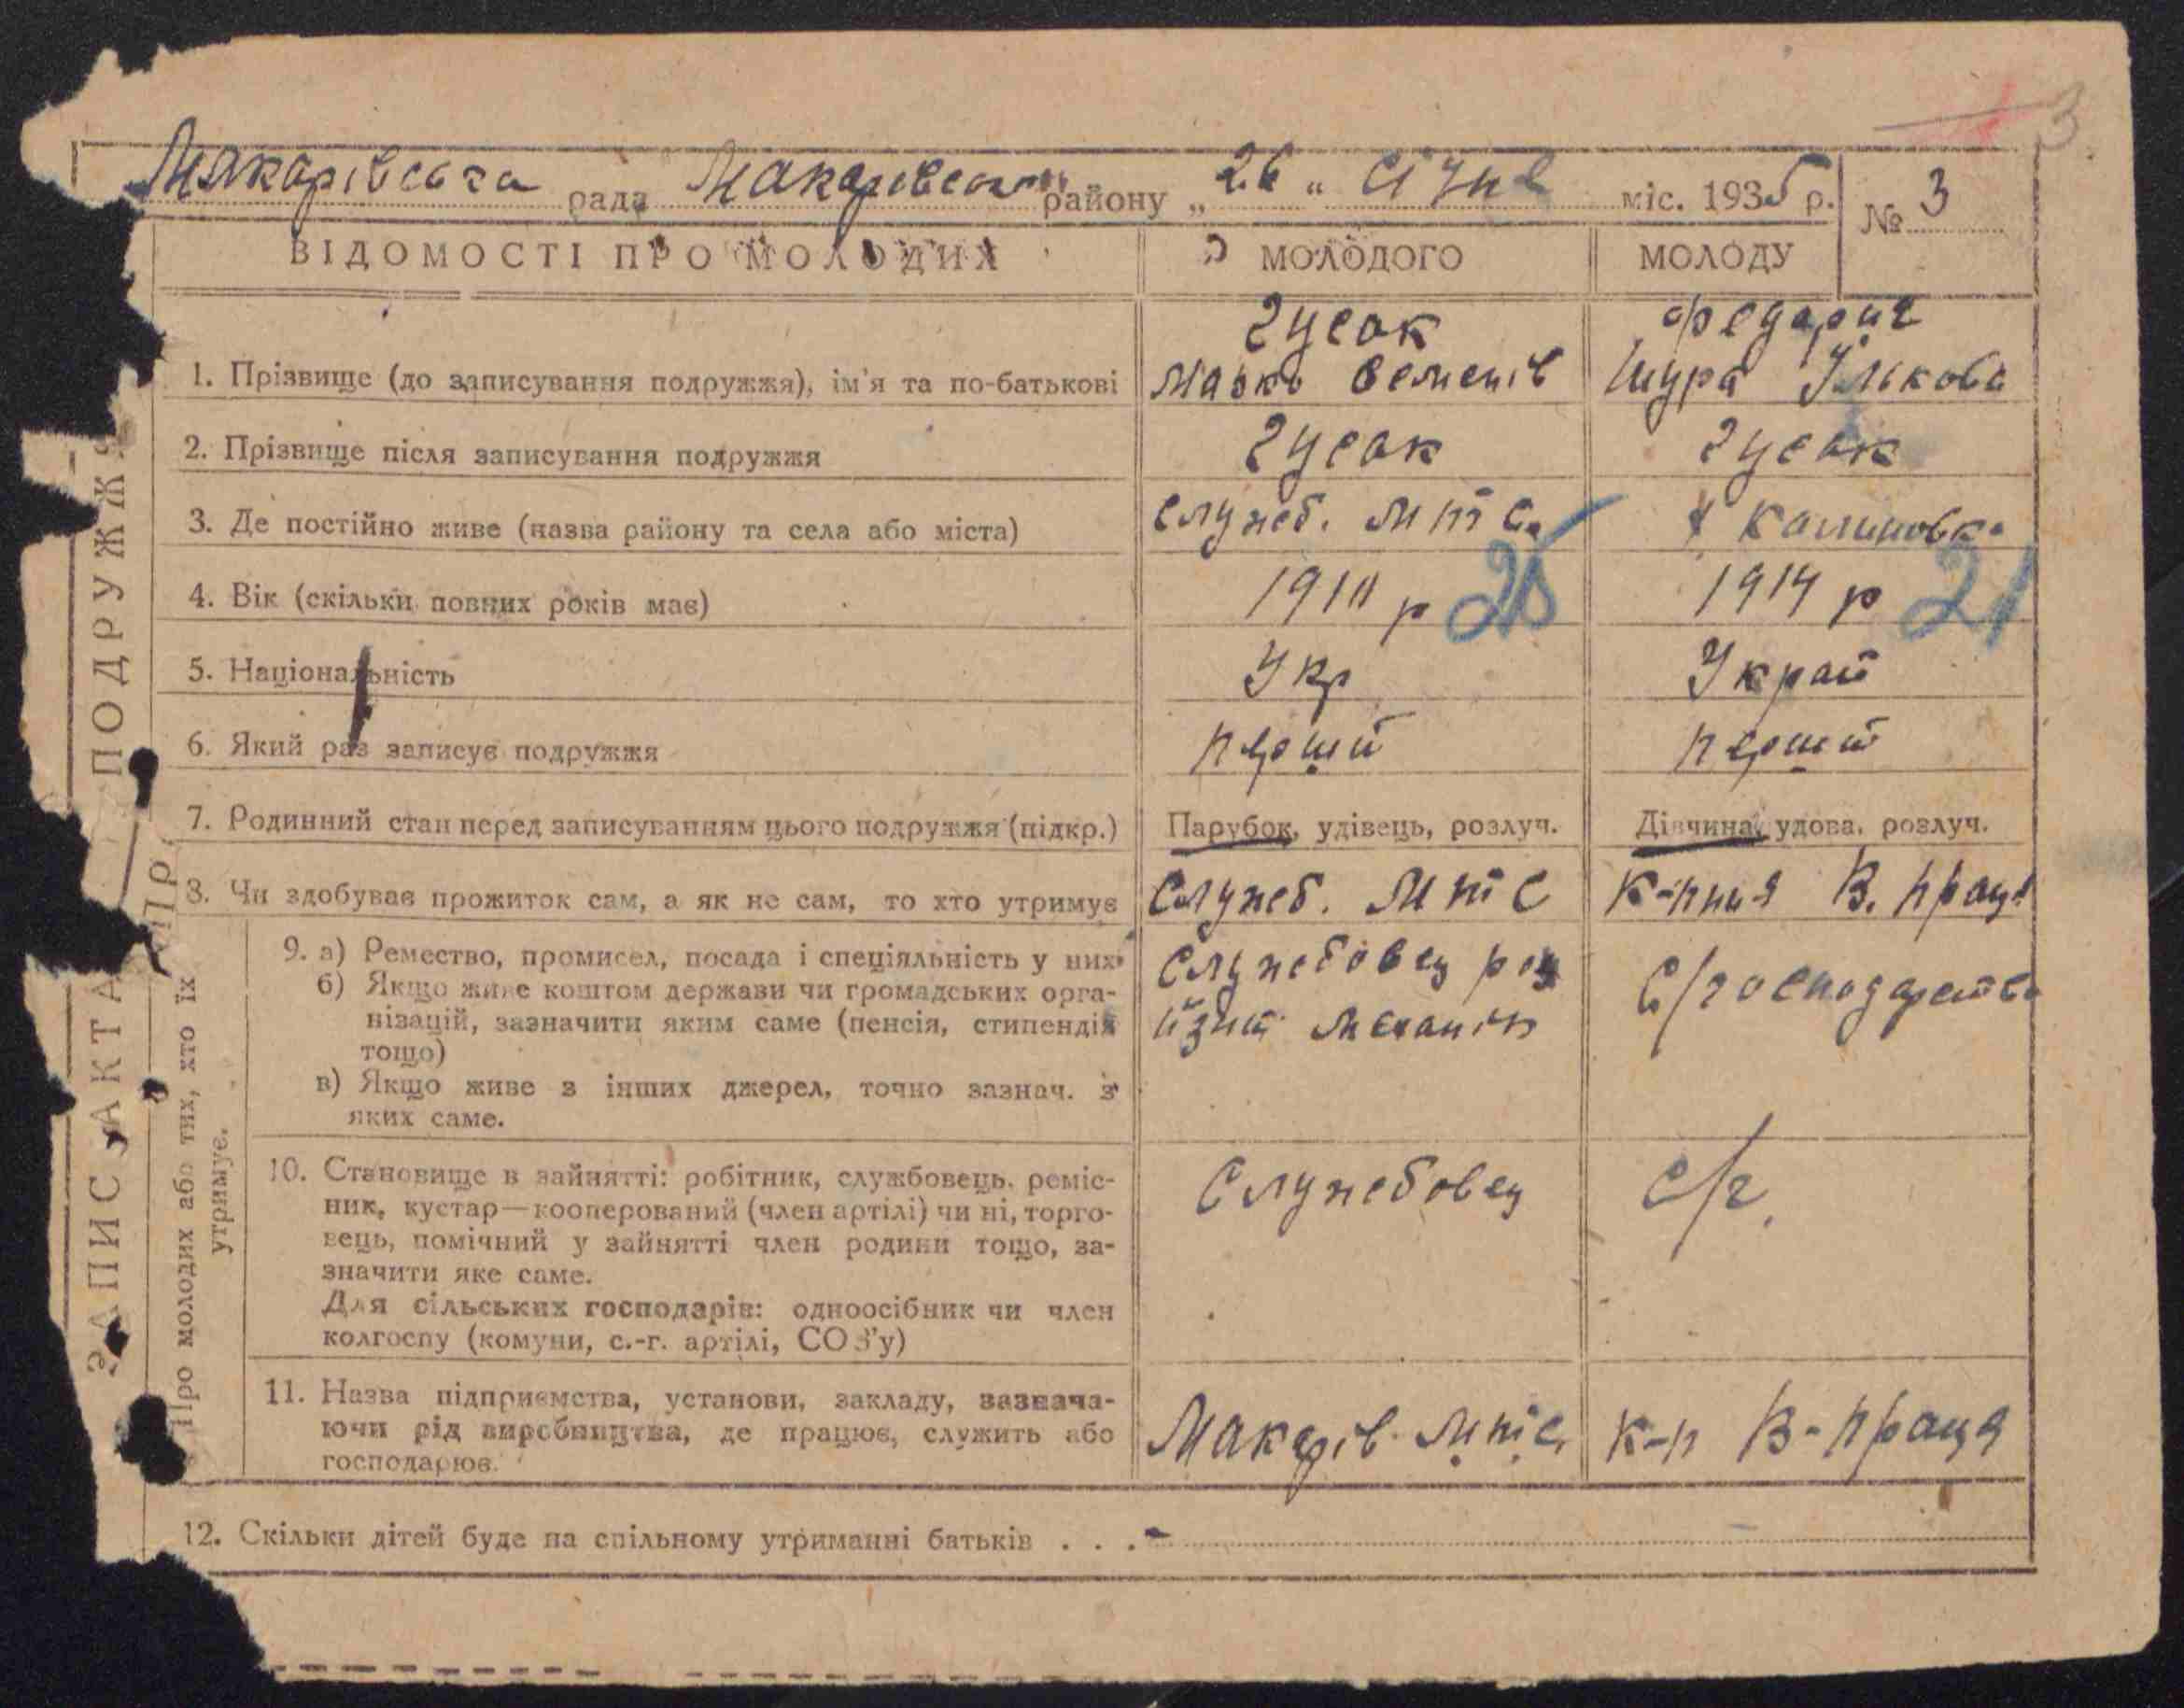 3
Макарівська рада Макарівськ району „26“ січня міс. 1935 р. № 3
ВІДОМОСТІ ПРО МОЛОДИХ МОЛОДОГО МОЛОДУ
Гусак Федорин
1. Прізвище (до записування подружжя), ім'я та по-батькові Марко Семенів Шура Ількова
2. Прізвище після записування подружжя Гусак Гусак
3. Де постійно живе (назва району та села або міста) служб. МТС Калиновка
4. Вік (скільки повних років має) 1910 р 25 1914 р 21
5. Національність Укр Украй
6. Який раз записує подружжя перший перший
7. Родинний стан перед записуванням цього подружжя (підкр.) Парубок, удівець, розлуч. Дівчина, удова, розлуч.
8. Чи здобуває прожиток сам, а як не сам, то хто утримує Служеб. МТС В. праця
9. а) Ремество, промисел, посада і спеціяльність у них Служебовец
б) Якщо живе коштом держави чи громадських орга- С/господарство
нізацій, зазначити яким саме (пенсія, стипендія механік
тощо)
в) Якщо живе з інших джерел, точно зазнач. з
яких саме.
10. Становище в зайнятті: робітник, службовець, реміс- Служебовец С/г.
ник, кустар—кооперований (член артілі) чи ні, торго-
вець, помічний у зайнятті член родини тощо, за-
значити яке саме.
Для сільських господарів: одноосібник чи член
колгоспу (комуни, с.-г. артілі, СОЗ'у)
11. Назва підприємства, установи, закладу, зазнача-
ючи рід виробництва, де працює, служить або Макарів МТС к-п В-праця
господарює.
12. Скільки дітей буде на спільному утриманні батьків . . . -
ЗАПИС АКТА
ПОДРУЖЖЯ
Про молодих або тих, хто їх
утримує.